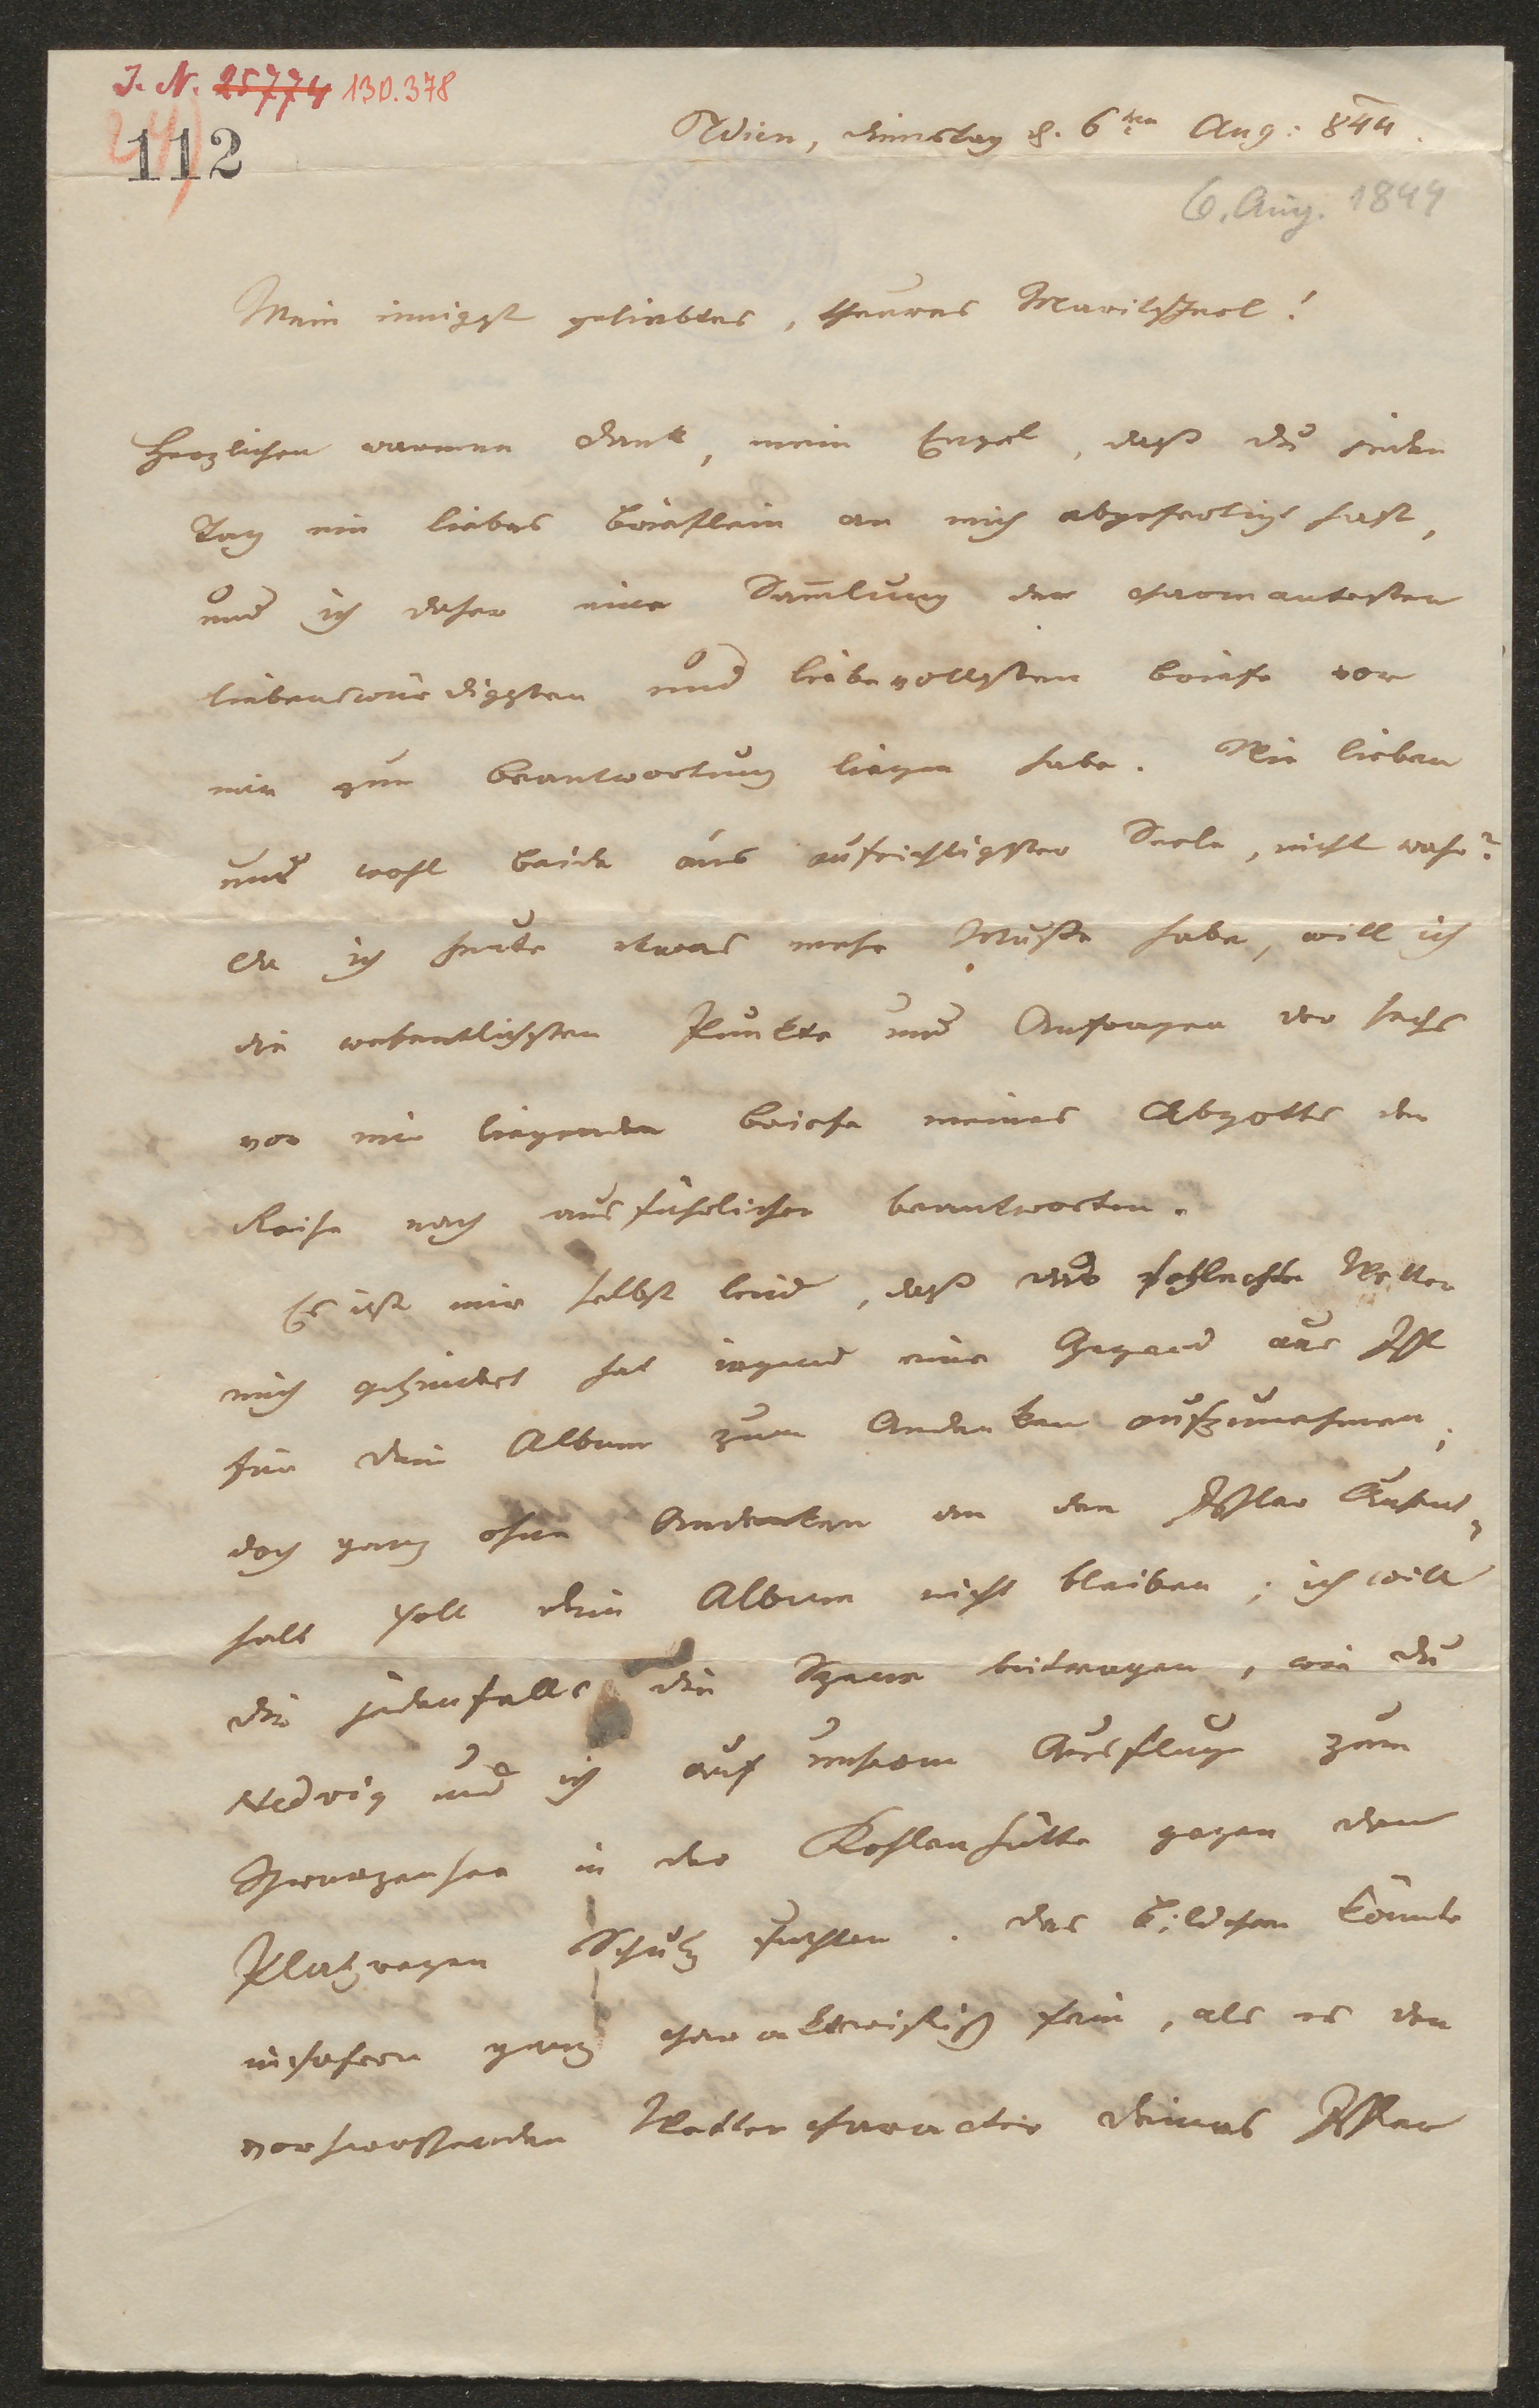 J. N. 25774 130.378
112
Wien, Dienstag d. 6ten Aug: 844.
6. Aug. 1844
Mein innigst geliebtes, theures Marilscherl!
Herzlichen warmen Dank, mein Engel, daß du jeden
Tag ein liebes Brieflein an mich abgefertigt hast,
und ich daher eine Sammlung der charmantesten
liebenswürdigsten und liebevollsten Briefe vor
mir zur Beantwortung liegen habe. Wir lieben
uns wohl beide aus aufrichtigster Seele, nicht wahr?
Da ich heute etwas mehr Muße habe, will ich
die wesentlichsten Punkte und Anfragen der sechs
vor mir liegenden Briefe meines Abgotts der
Reihe nach ausführlicher beantworten.
Es ist mir selbst leid, daß das schlechte Wetter
mich gehindert hat irgend eine Gegend aus Ischl
für dein Album zum Andenken aufzunehmen;
doch ganz ohne Andenken an den Ischler Aufent-
halt soll dein Album nicht bleiben; ich will
dir jedenfalls die Szene beitragen, wie du
Hedwig und ich auf unserm Ausfluge zum
Schwarzensee in der Kohlenhütte gegen den
Platzregen Schutz suchten. Das Bildchen könnte
insofern ganz charakteristisch sein, als es den
vorherrschenden Wettercharacter deines Ischler